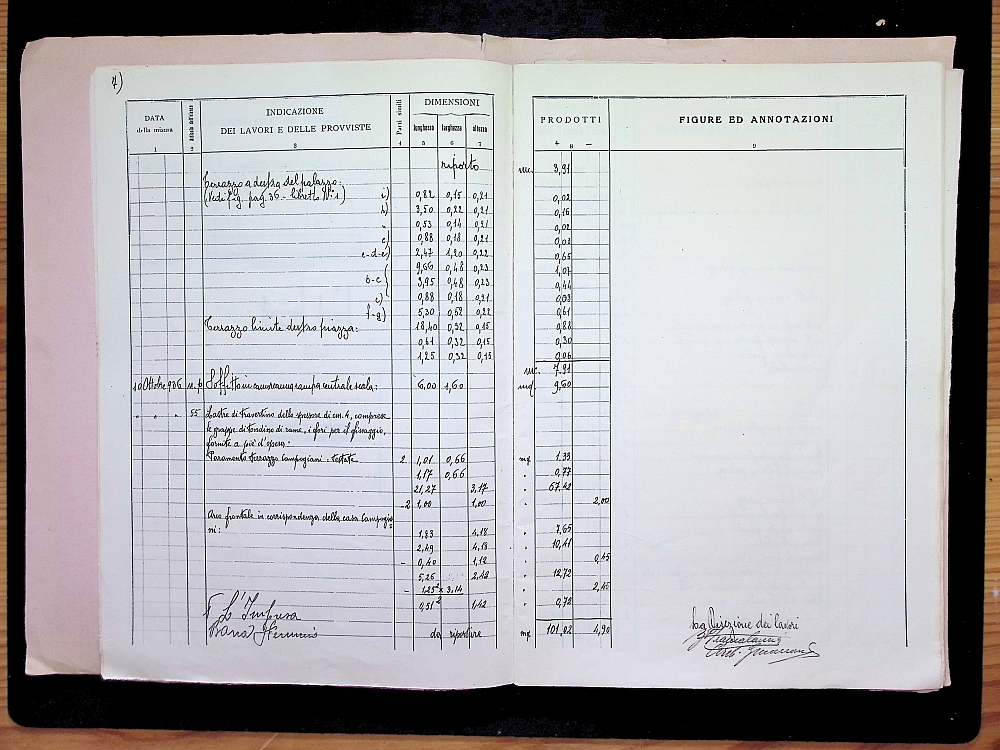 7)
DATA della misura INDICAZIONE DEI LAVORI E DELLE PROVVISTE Parti simili DIMENSIONI lunghezza larghezza altezza PRODOTTI + - FIGURE ED ANNOTAZIONI
1 2 3 4 5 6 7 8 9
riporto mc. 3,91
Terrazzo a destra del palazzo:
(Vedi fig. pag. 36 - libretto N° 1) i) 0,82 0,15 0,21 0,02
h) 3,50 0,22 0,21 0,16
0,53 0,14 0,21 0,02
c) 0,88 0,18 0,21 0,03
c-d-e) 2,47 1,20 0,22 0,65
9,66 0,48 0,23 1,07
b-c 3,95 0,48 0,23 0,44
c) 0,88 0,18 0,21 0,03
f-g) 5,30 0,52 0,22 0,61
Terrazzo limite destro piazza: 18,40 0,32 0,15 0,88
0,61 0,32 0,15 0,30
1,25 0,32 0,15 0,06
mc. 7,91
10 Ottobre 936 n.p. Soffitto in camorcanna rampa centrale scala: 6,00 1,60 mq. 9,60
" " " 55 Lastre di travertino dello spessore di cm. 4, comprese
le grappe di tondino di rame, i fori per il fissaggio,
fornite a piè d'opera:
Paramento terrazzo Campogiani - testate 2 1,01 0,66 mq 1,33
1,17 0,66 " 0,77
21,27 3,17 " 67,42
-2 1,00 1,00 " 2,00
Arco frontale in corrispondenza della casa Campogia
ni: 1,83 4,18 " 7,65
2,49 4,18 " 10,41
- 0,40 1,12 " 0,45
5,26 2,42 " 12,72
- 1,25² x 3,14 " 2,45
0,51² 1,42 " 0,72
F. L'Impresa
da riportare mq 101,02 4,90
La Direzione dei lavori